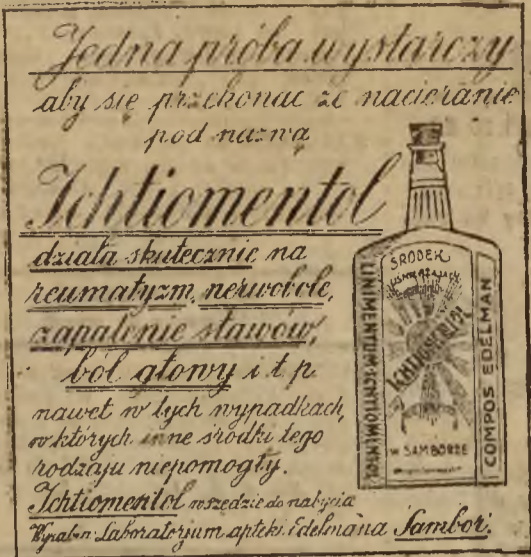 Jedna próba wystarczy
aby się przekonać że nacieranie
pod nazwą
Ichtiomentol
działa skutecznie na
reumatyzm, nerwobole,
zapalenie stawów,
ból głowy i t p
nawet w tych wypadkach,
w których inne środki tego
rodzaju niepomogły.
Ichtiomentol wszędzie do nabycia
Wyrabia: Laboratorjum apteki Edelmana Sambor.
ŚRODEK
UŚMIERZAJĄCY
ICHTIOMENTOL
W SAMBORZE
LINIMENTUM ICHTIOMENTOL
COMPOS EDELMAN